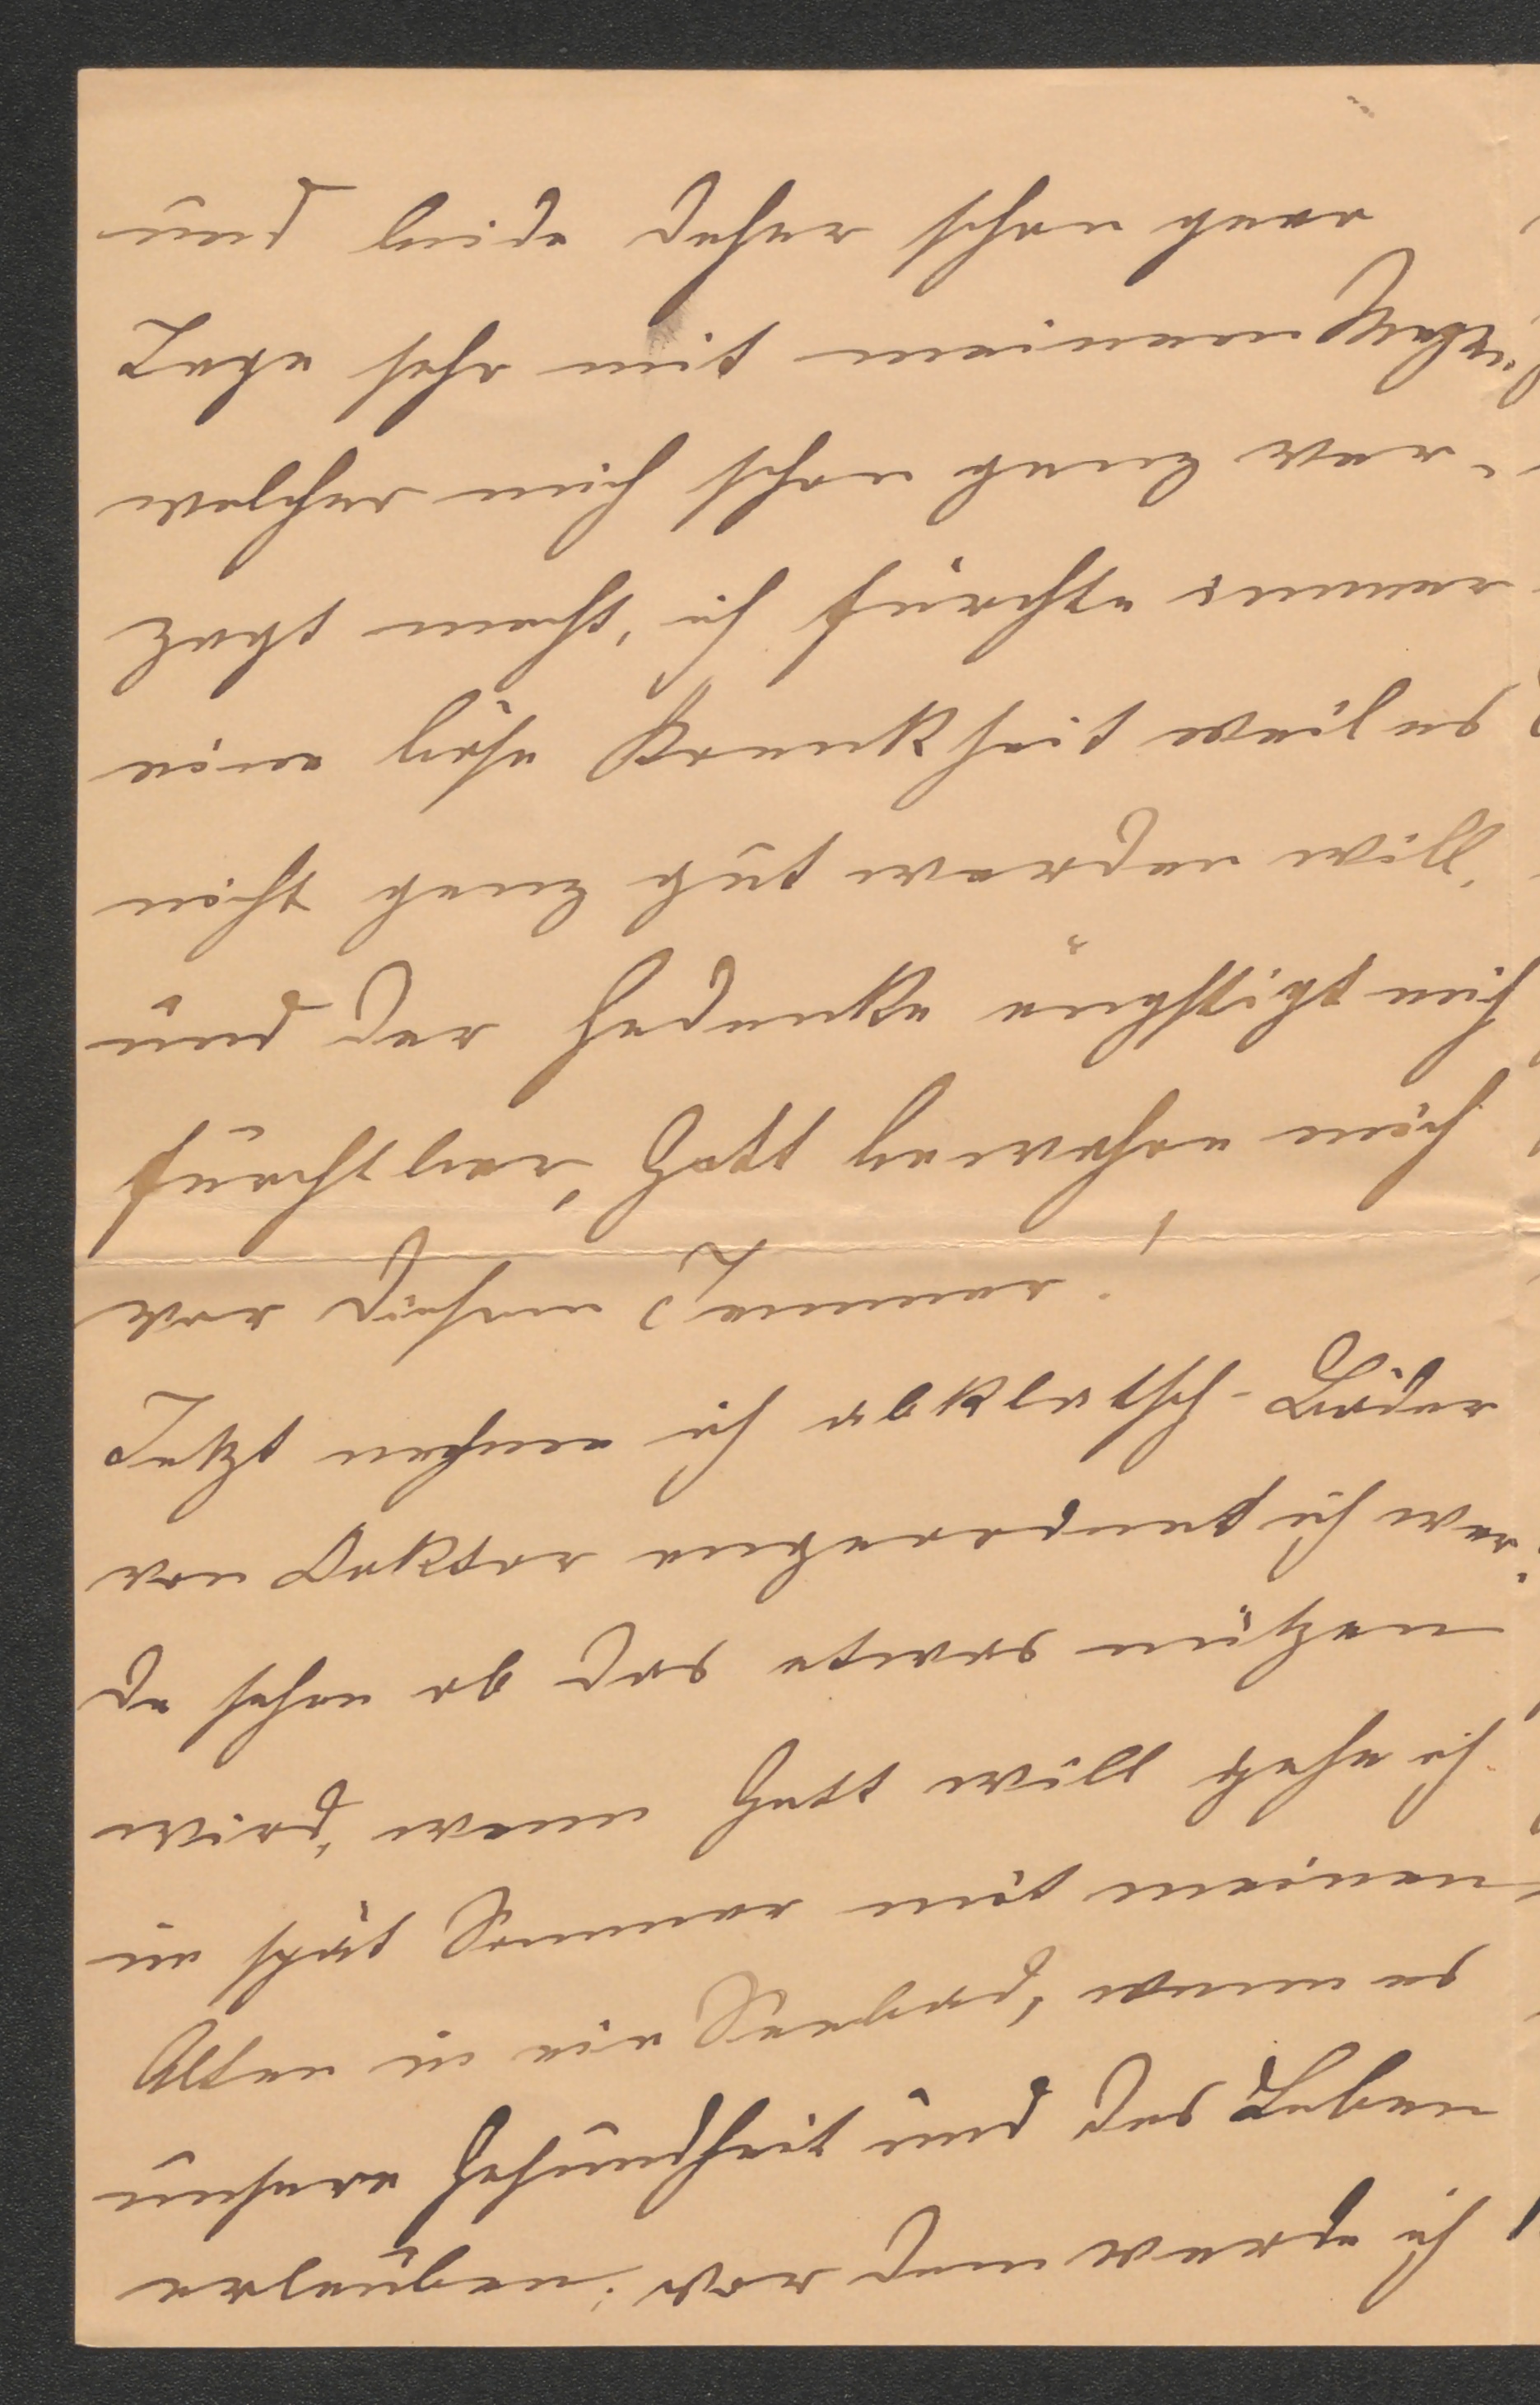 und leide daher schon paar
Tage sehr mit meinem
welcher mich schon ganz ver-
zagt macht, ich fürchte immer
eine böse Krankheit weil es
nicht ganz gut werden will,
und der Gedanke ängstigt mich
furchtbar, Gott bewahre mich
vor diesem Jammer!
Jetzt nehme ich abklatsch-Bäder
von Doktor angeordnet, ich wer-
de sehen ob das etwas nützen
wird, wenn Gott will gehe ich
in spät Sommer mit meinen
Alten in ein Seebad, wenn es
unsere Gesundheit und das Leben
erlauben; vor dem werde ich